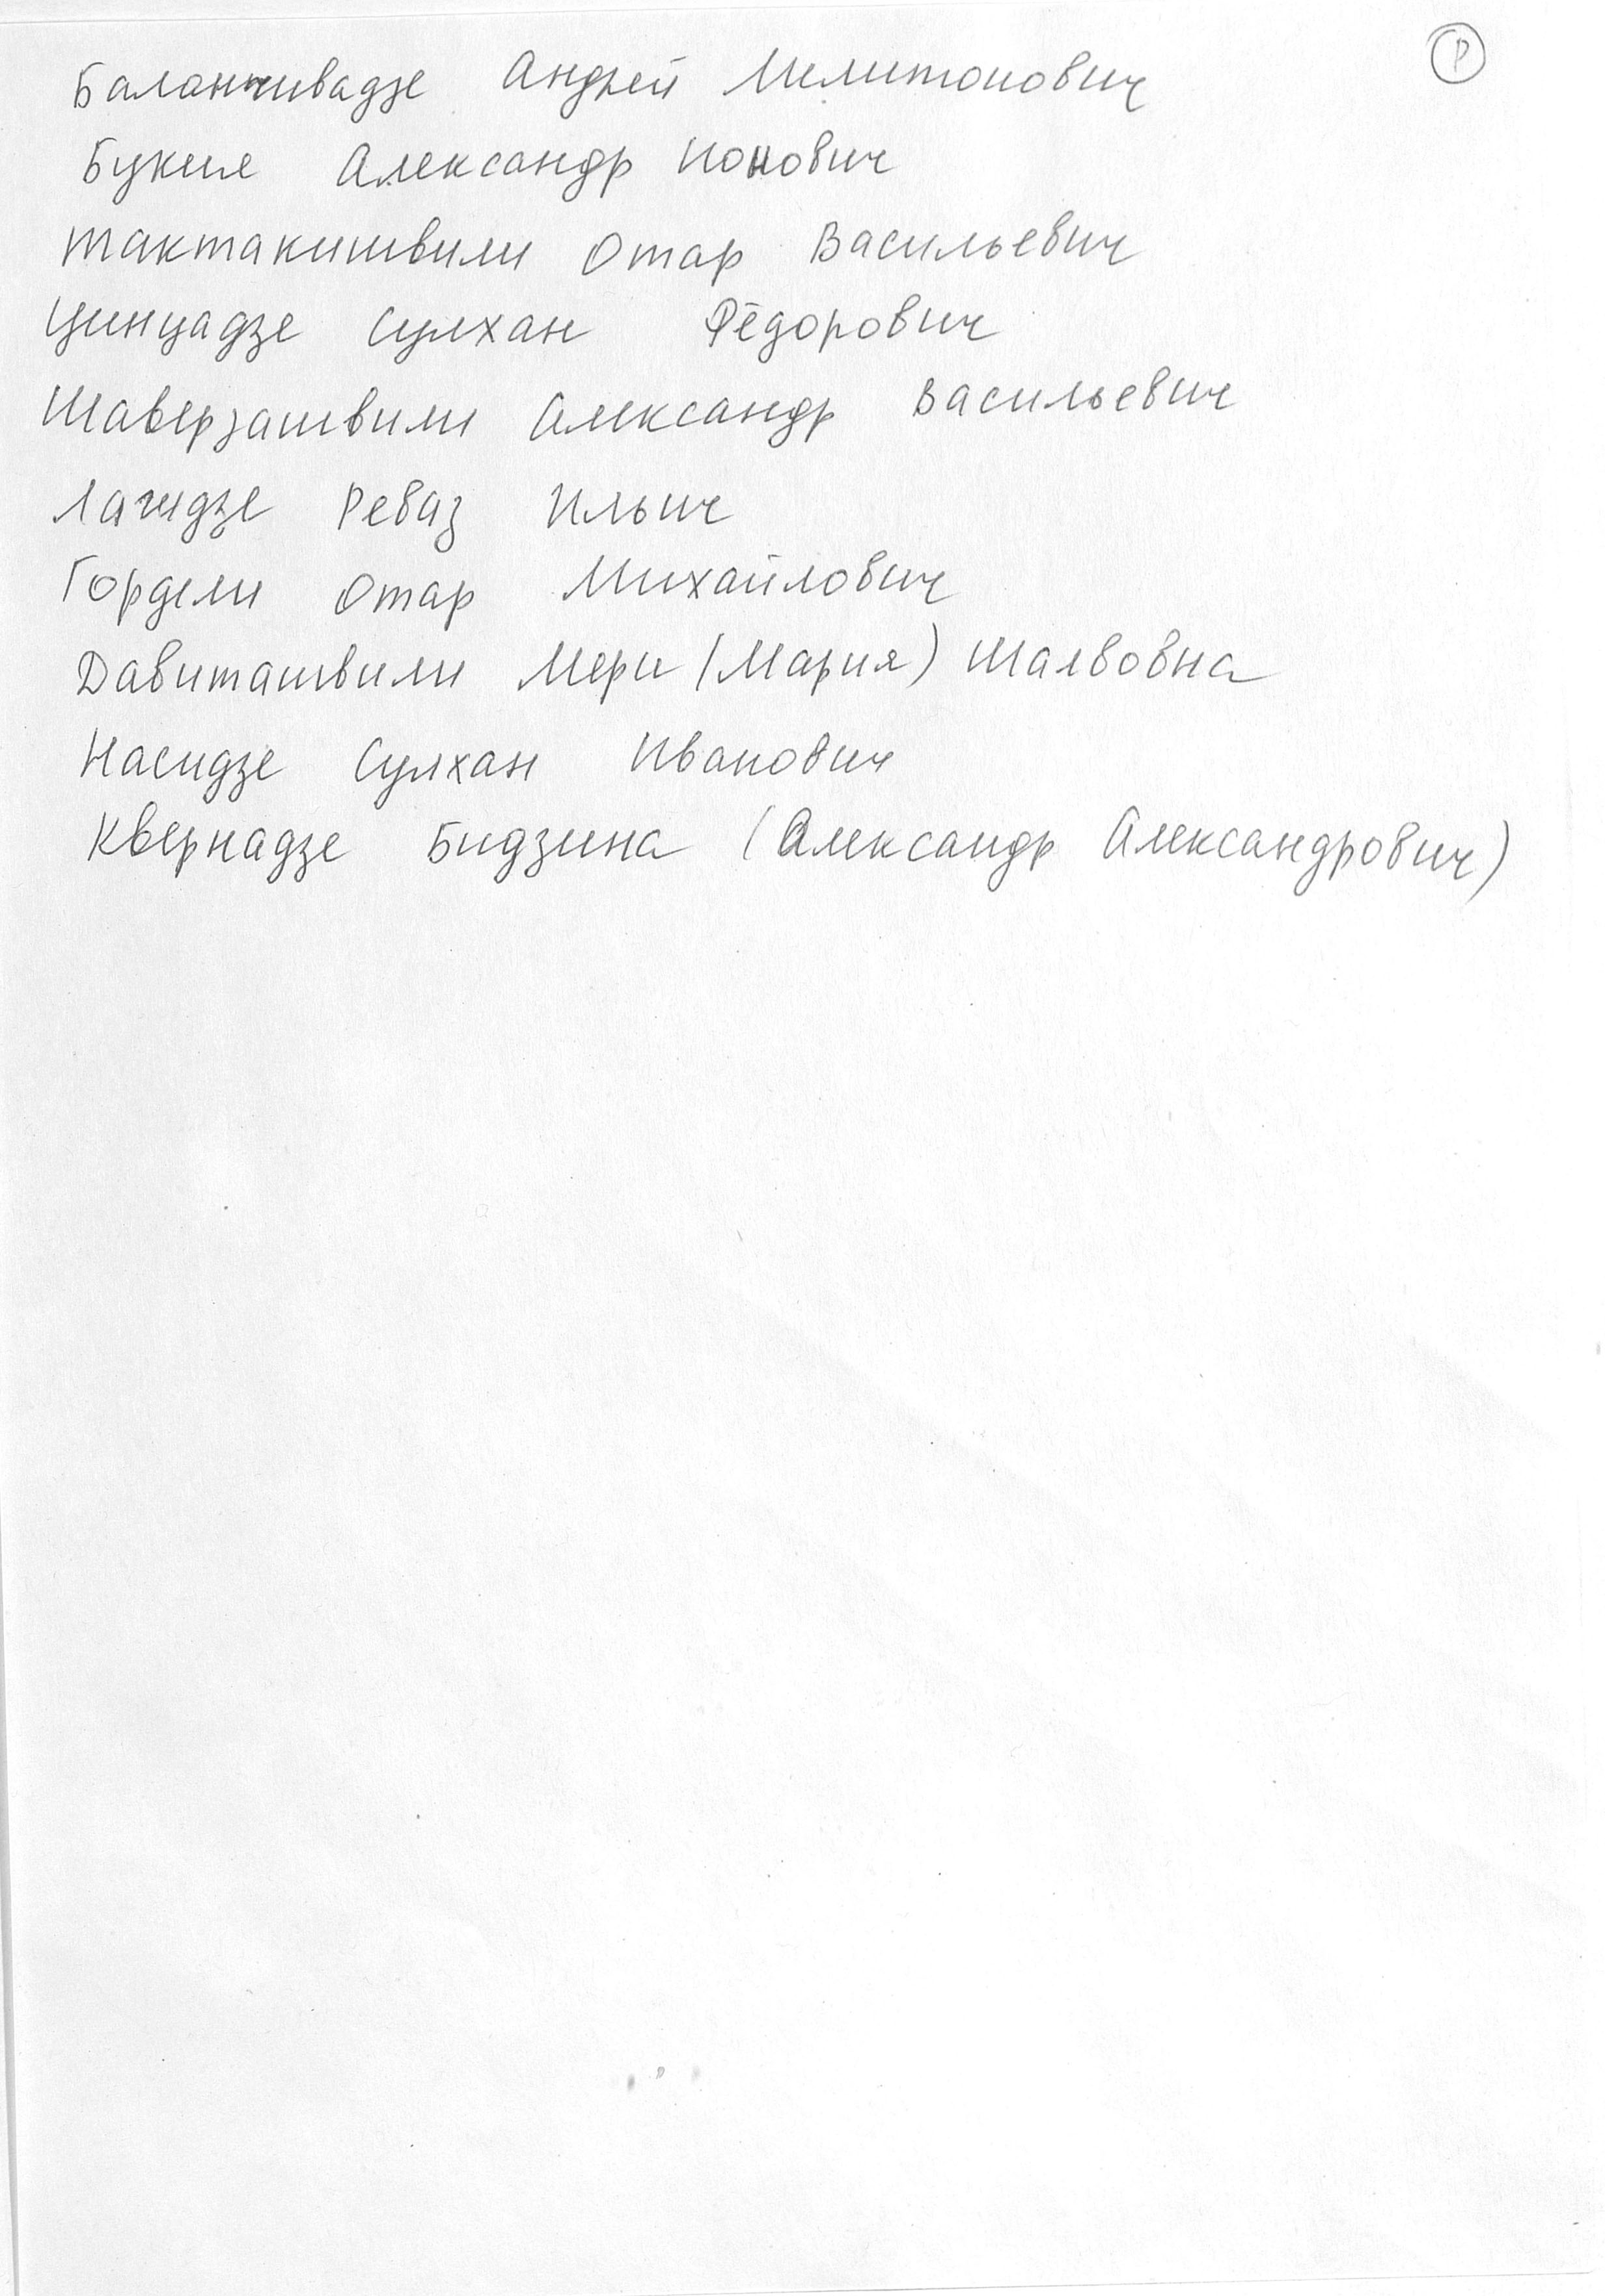 Баланчивадзе Андрей Мелитонович
Букия Александр Ионович
Тактакишвили Отар Васильевич
Цинцадзе Сулхан Фёдорович
Шаверзашвили Александр Васильевич
Лагидзе Реваз Ильич
Гордели Отар Михайлович
Давиташвили Мери (Мария) Шалвовна
Насидзе Сулхан Иванович
Квернадзе Бидзина (Александр Александрович)